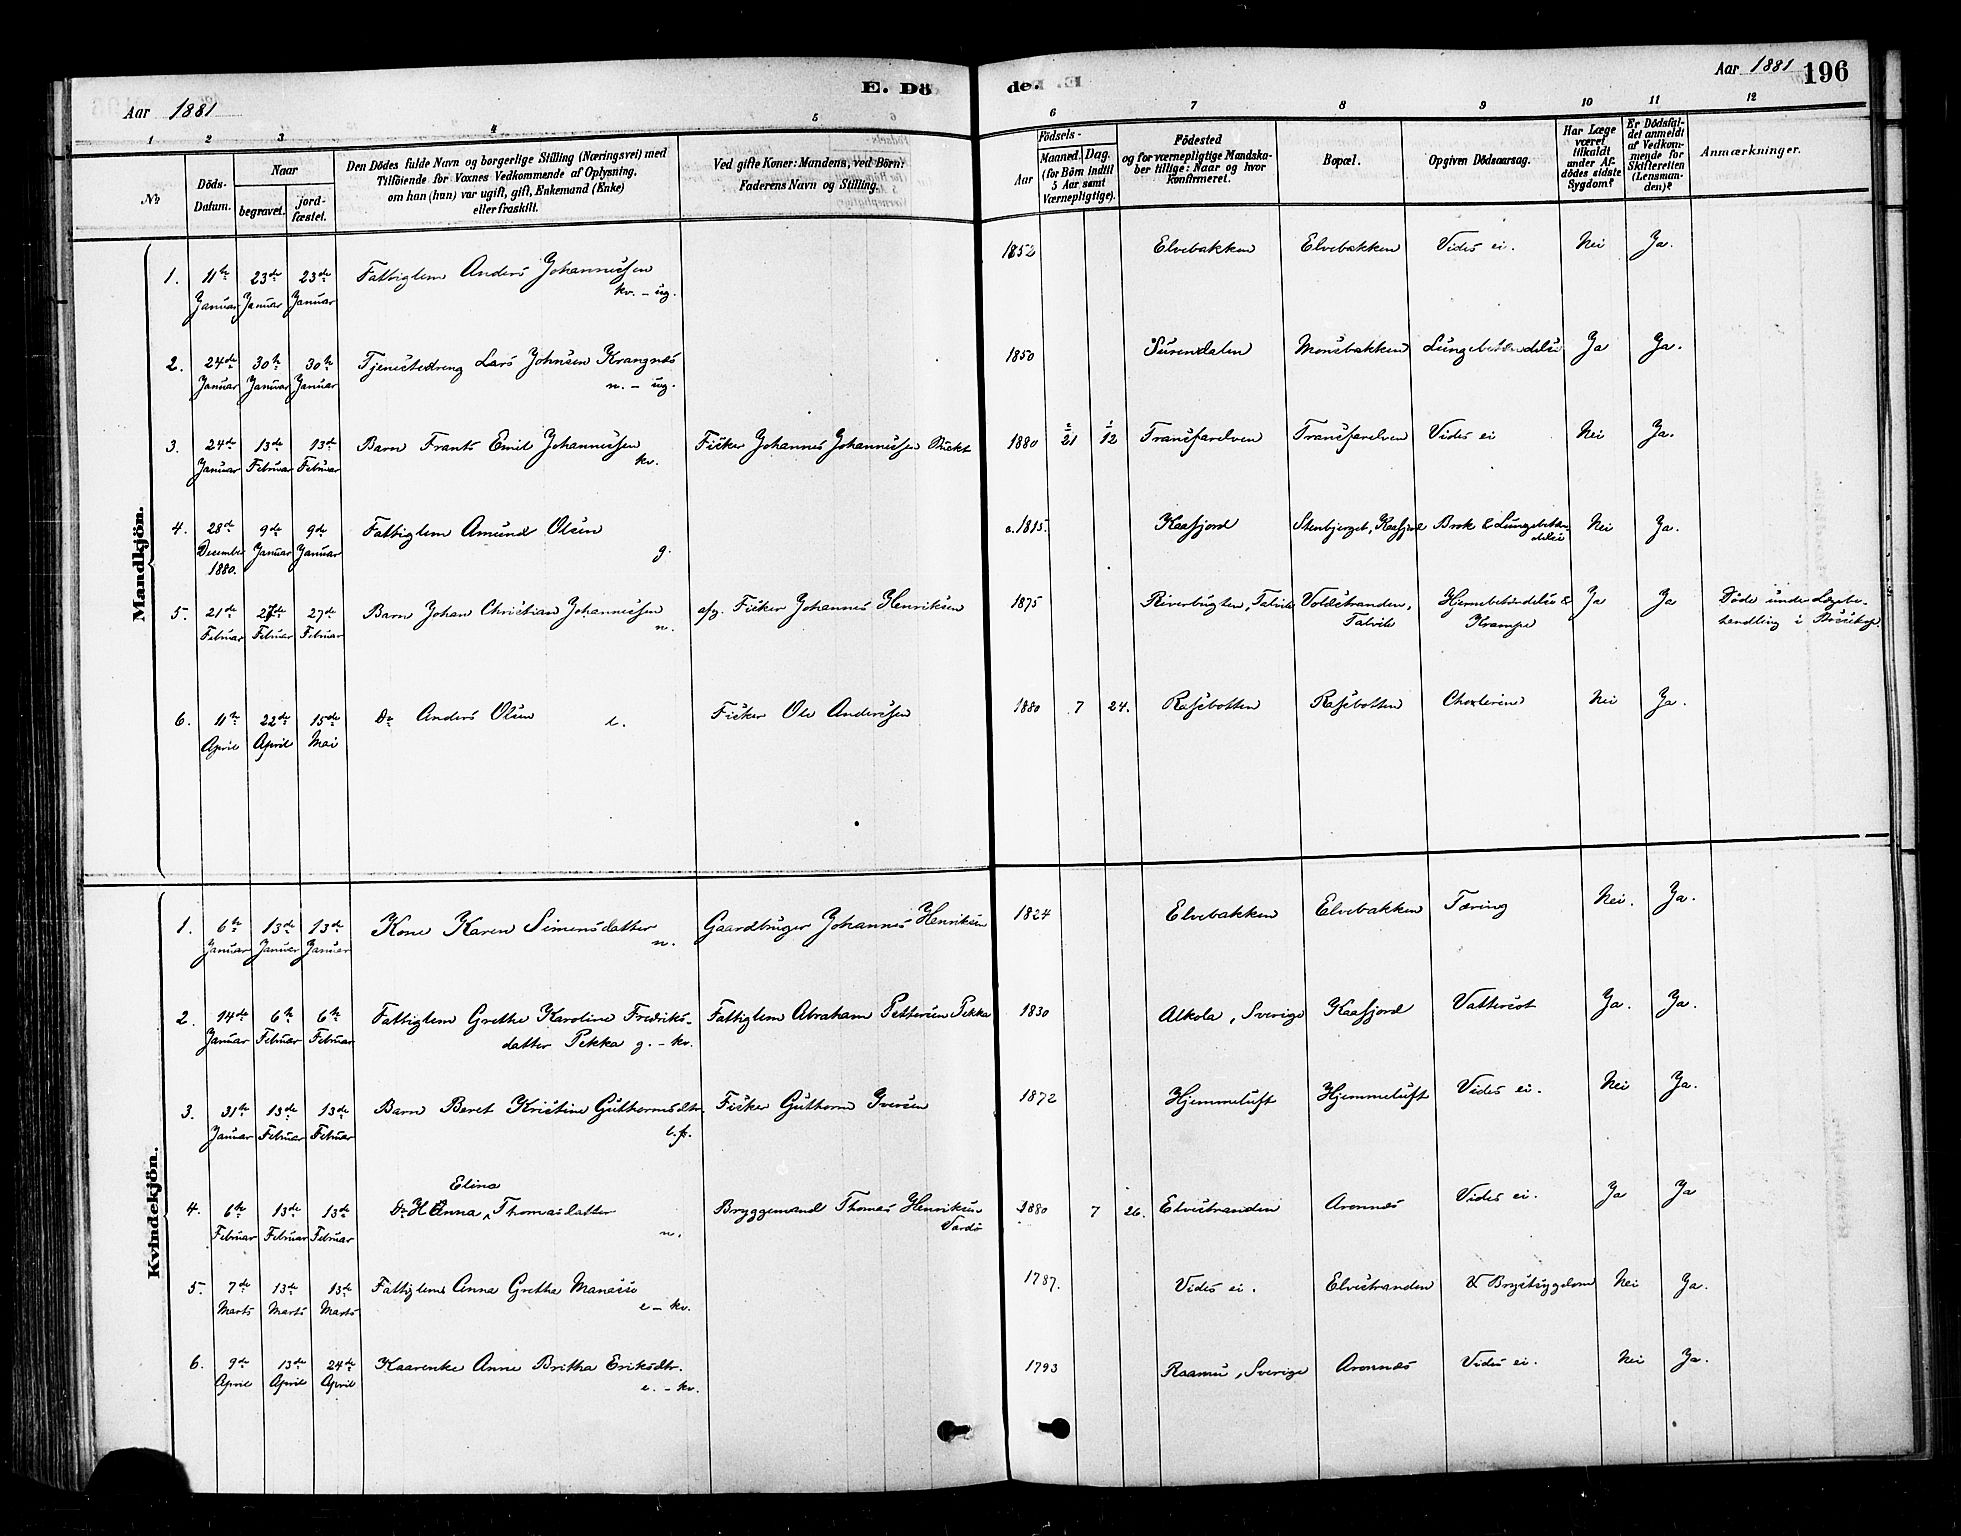 Aar 1881
E. Dö
de.
Aar 1881
196
1 2 3 4 5 6 7 8 9 10 11 12
No
Döds-Datum.
Naar
begravet.
jord-fæstet.
Den Dödes fulde Navn og borgerlige Stilling (Næringsvei) med
Tilföiende for Voxnes Vedkommende af Oplysning,
om han (hun) var ugift, gift, Enkemand (Enke)
eller fraskilt.
Ved gifte Koner: Mandens, ved Börn:
Faderens Navn og Stilling.
Födsels-
Aar
Maaned. Dag.
(for Börn indtil
5 Aar samt
Værnepligtige).
Födested
og for værnepligtige Mandska-
ber tillige: Naar og hvor
Konfirmeret.
Bopæl.
Opgiven Dödsaarsag.
Har Læge
været
tilkaldt
under Af-
dödes sidste
Sygdom?
Er Dödsfal-
det anmeldt
af Vedkom-
mende for
Skifteretten
(Lensman-
den)?
Anmærkninger.
Mandkjön.
1. 11te Januar 23de Januar 23de Januar Fattiglem Anders Johannessen kv. - ug. 1852 Elvebakken Elvebakken Vides ei. Nei Ja.
2. 24de Januar 30te Januar 30te Januar Tjenestedreng Lars Johnsen Krangnæs n. - ug. 1850 Surendalen Monsbakken Lungebetændelse Ja Ja.
3. 24de Januar 13de Februar 13de Februar Barn Frants Emil Johannessen kv. Fisker Johannes Johannessen 1880 21 12 Transfarelven Transfarelven Vides ei Nei Ja.
4. 28de December 1880. 9de Januar 9de Januar Fattiglem Amund Olsen g. c. 1815. Kaafjord Stenbjerget, Kaafjord Brok & Lungebetændelse Nei Ja.
5. 21de Februar 27de Februar 27de Februar Barn Johan Christian Johannessen n. afg. Fisker Johannes Henriksen 1875 Riverbugten, Talvik Voldstranden, Talvik Hjernebetændelse & Krampe Ja Ja Døde under Lægebehandling i Bossekop.
6. 11te April 22de April 15de Mai Do Anders Olsen l. Fisker Ole Anderssen 1880 7 24. Rafsbotten Rafsbotten Cholerine Nei Ja.
Kvindekjön.
1. 6te Januar 13de Januar 13de Januar Kone Karen Simensdatter n. Gaardbruger Johannes Henriksen 1824 Elvebakken Elvebakken Tæring Nei. Ja.
2. 14de Januar 6te Februar 6te Februar Fattiglem Grethe Karoline Fredriks-
datter Pekka g. - kv. Fattiglem Abraham Pettersen Pekka 1830 Alkola, Sverige Kaafjord Vattersot Ja. Ja.
3. 31te Januar 13de Februar 13de Februar Barn Beret Kristine Guthormsdtr. l.f. Fisker Guthorm Iversen 1872 Hjemmeluft Hjemmeluft Vides ei. Nei Ja.
4. 6te Februar 13de Februar 13de Februar Do Anna Elina Thomasdatter n. Bryggemand Thomas Henriksen Vardø 1880 7 26. Elvestranden Aronnæs Vides ei. Ja Ja
5. 7de Marts 13de Marts 13de Marts Fattiglem Anna Grethe e - kv. 1787. Vides ei. Elvestranden Brystsygdom Nei Ja.
6. 9de April 13de April 24de April Kaarenke Anne Britha Eriksdtr. e. - kv. 1793 Sverige Aronnæs Vides ei. Nei Ja.